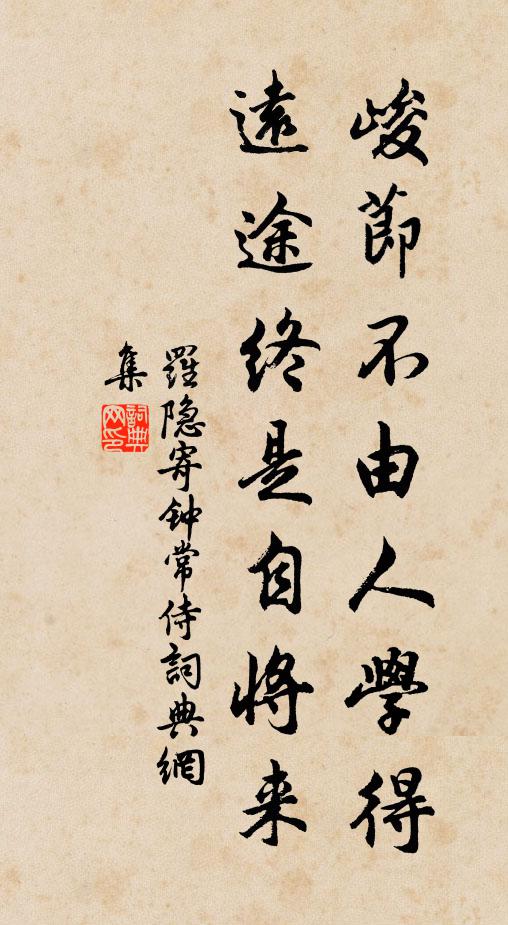 峻莭不由人學得
遠途終是自將来
羅隐寄钟常侍詞典網
集
詞典网印